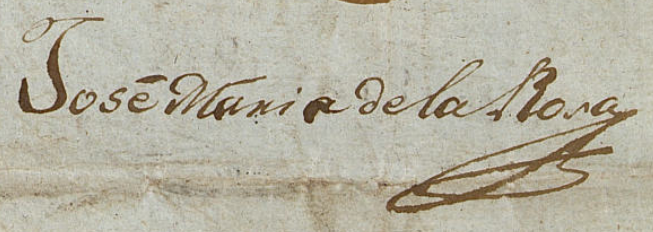 José Maria de la Rosa